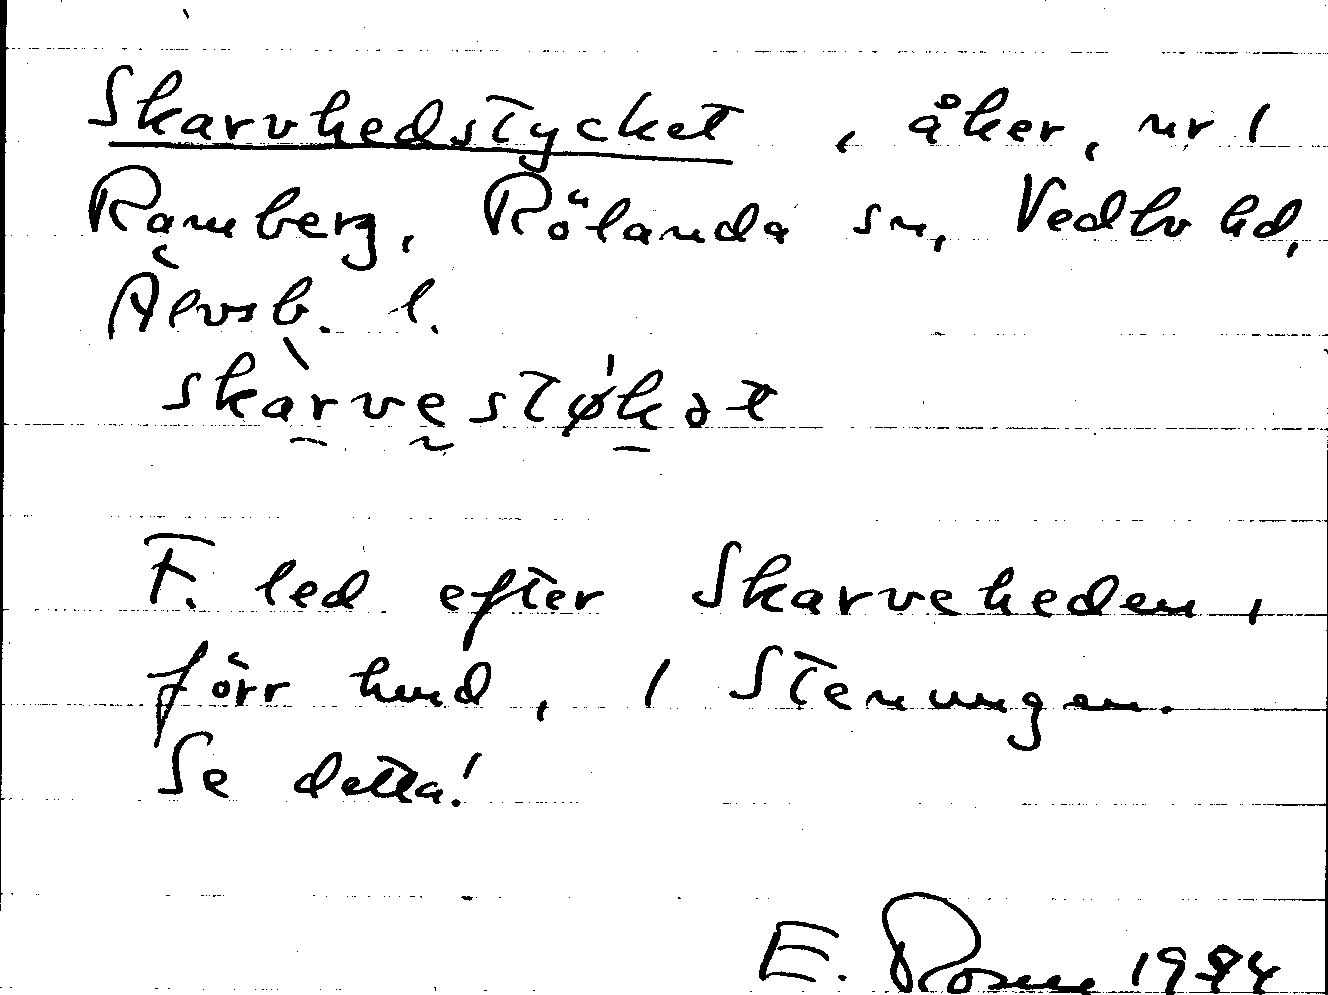 Skarvhedstycket, åker, nr 1
Ramberg, Rölanda sn, Vedbo hd,
Älvsb. l.
skàrvestø̍kət
F. led efter Skarveheden,
förr hmd, 1 Stenungen.
Se detta!
E. 1984